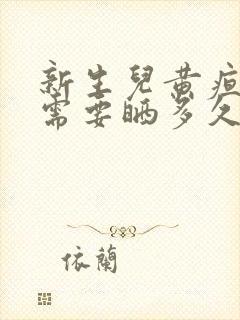 新生兒黃疸
需要晒多久
依蘭